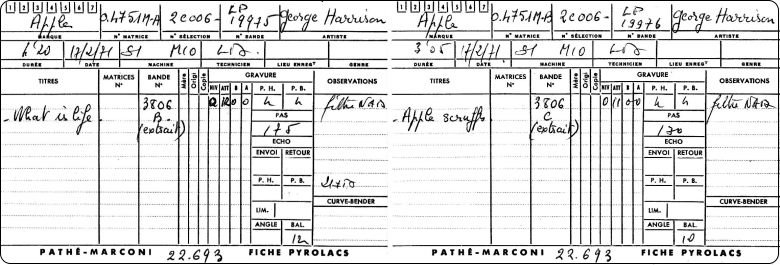 1 2 3 4 5 6 7
Apple 0.4751M-A 2C006- LP 19975 George Harrison
MARQUE N° MATRICE N° SÉLECTION N° BANDE ARTISTE
4'20 17/2/71 S1 M10
DURÉE DATE MACHINE TECHNICIEN LIEU ENREGt GENRE
TITRES MATRICES N° BANDE N° Mère Origi Copie GRAVURE OBSERVATIONS
NIV ATT B A P. H. P. B.
- What is life - 3806 B - (extrait) 0 12 0 0 h h filtre NAB
PAS
175
ECHO
ENVOI RETOUR
P. H. P. B.
CURVE-BENDER
LIM.
ANGLE BAL.
12
PATHÉ-MARCONI 22.693 FICHE PYROLACS
1 2 3 4 5 6 7
Apple 0.4751M-B 2C006- LP 19976 George Harrison
MARQUE N° MATRICE N° SÉLECTION N° BANDE ARTISTE
3'05 17/2/71 S1 M10
DURÉE DATE MACHINE TECHNICIEN LIEU ENREGt GENRE
TITRES MATRICES N° BANDE N° Mère Origi Copie GRAVURE OBSERVATIONS
NIV ATT B A P. H. P. B.
- Apple scruffs - 3806 C (extrait) 0 11 0 0 h h filtre NAB
PAS
170
ECHO
ENVOI RETOUR
P. H. P. B.
CURVE-BENDER
LIM.
ANGLE BAL.
10
PATHÉ-MARCONI 22.693 FICHE PYROLACS